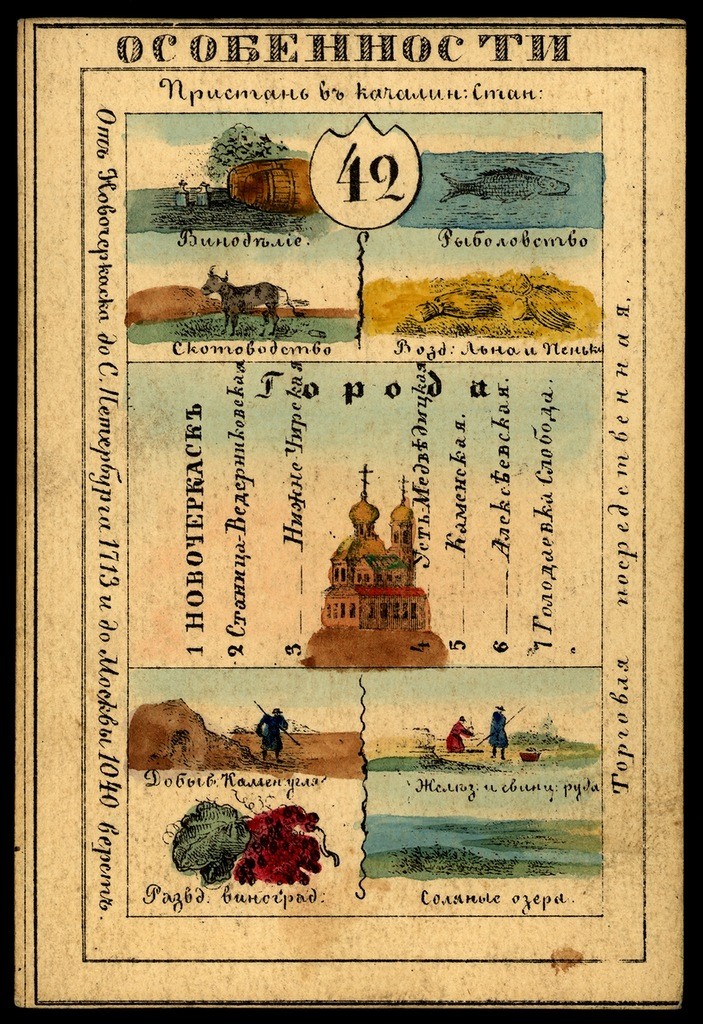 ОСОБЕННОСТИ
Пристань въ качалин: Стан:
Отъ Новочеркаска до С. Петербурга 1713 и до Москвы 1040 верстъ.
42
Винодѣліе.
Рыболовство
Скотоводство
Возд: Льна и Пеньки
Города
1 НОВОЧЕРКАСКЪ
2 Станица-Ведерниковская
3 — Нижне-Чирская
4 Усть-Медвѣдицкая
5 — Каменская.
6 — Алексѣевская.
7 Голодаевка Слобода.
Добыв. Камен угля
Желѣз: и свинц: руда
Развд. виноград:
Соляные озера.
Торговля посредственная.